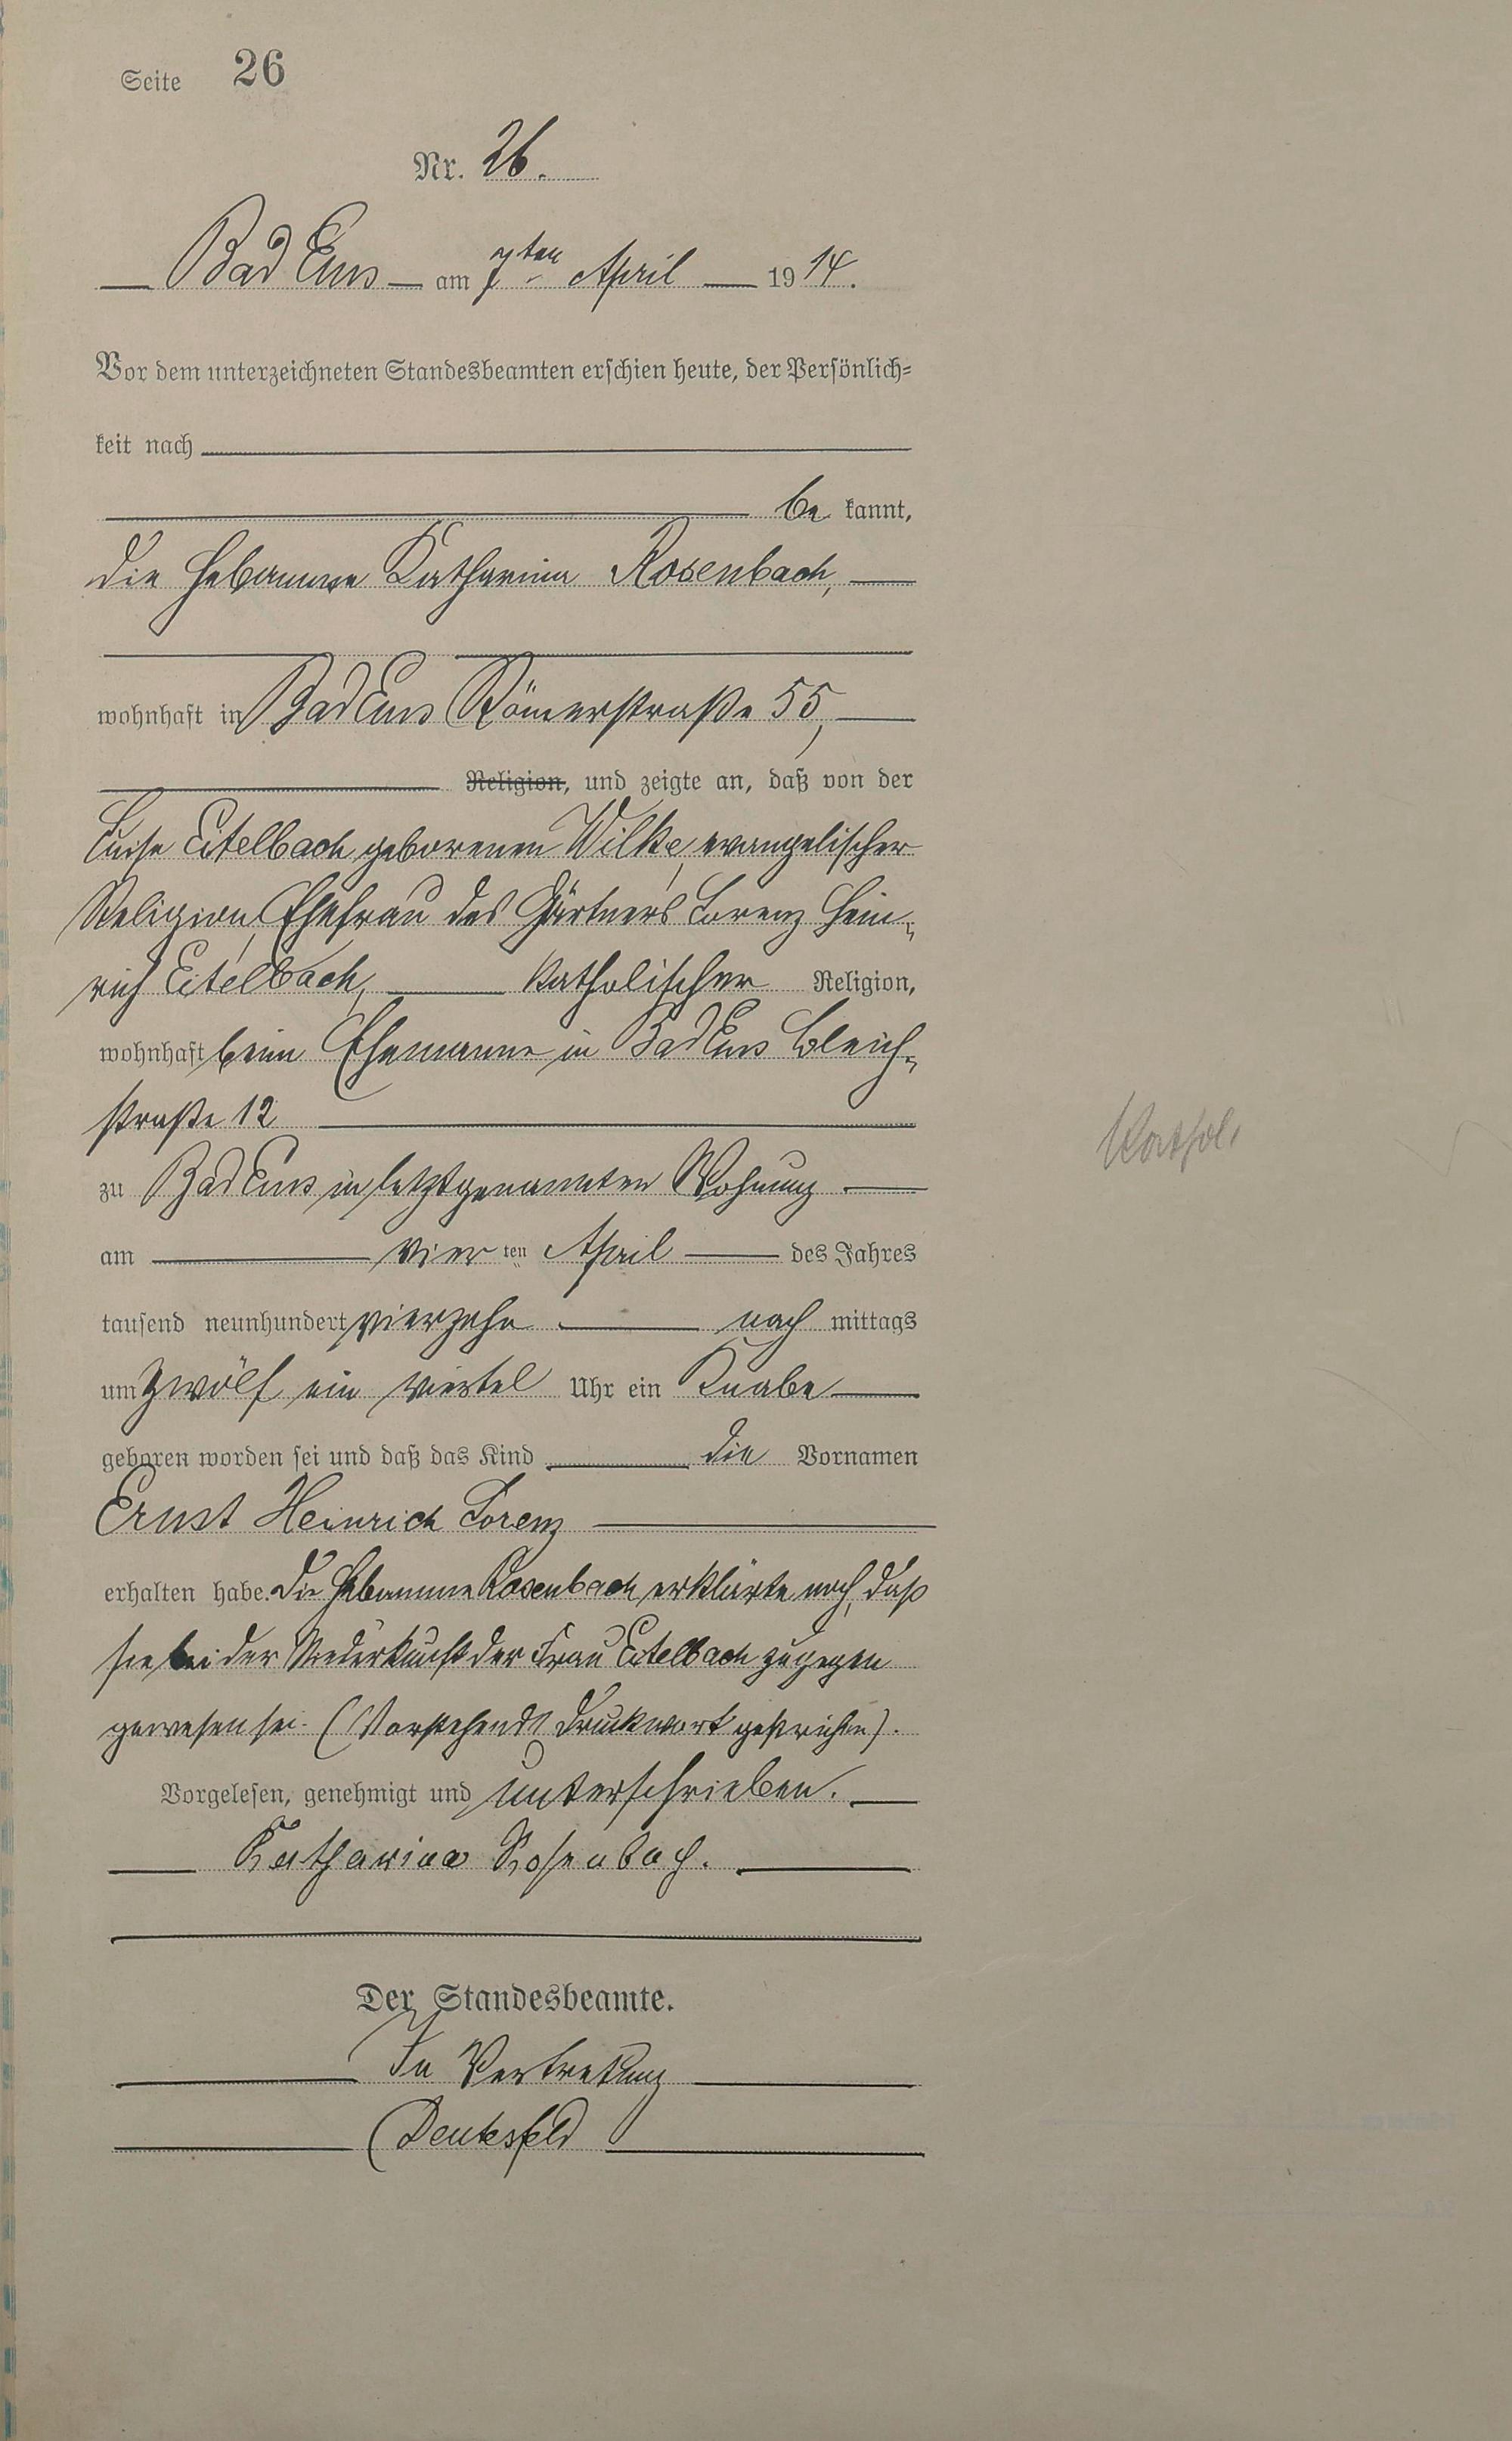 Seite 26
Nr. 26.
Bad Ems am 7ten April 1914.
Vor dem unterzeichneten Standesbeamten erschien heute, der Persönlich=
keit nach
be kannt,
die Hebamme Katharina Rosenbach,
wohnhaft in Bad Ems Römerstraße 55,
Religion, und zeigte an, daß von der
Luise Eitelbach geborenen Wilke, evangelischer
Religion, Ehefrau des Gärtners Lorenz Hein-
rich Eitelbach, katholischer Religion,
wohnhaft beim Ehemanne in Bad Ems Bleich-
straße 12
zu Bad Ems in letztgenannter Wohnung
am vier ten April des Jahres
tausend neunhundert vierzehn nach mittags
um zwölf ein viertel Uhr ein Knabe
geboren worden sei und daß das Kind die Vornamen
Ernst Heinrich Lorenz
erhalten habe. Die Hebamme Rosenbach erklärte noch, daß
sie bei der Niederkunft der Frau Eitelbach zugegen
gewesen sei. (Vorstehendes Druckwort gestrichen).
Vorgelesen, genehmigt und unterschrieben.
Katharina Rosenbach.
Der Standesbeamte.
In Vertretung
Deutesfeld
Kathol.